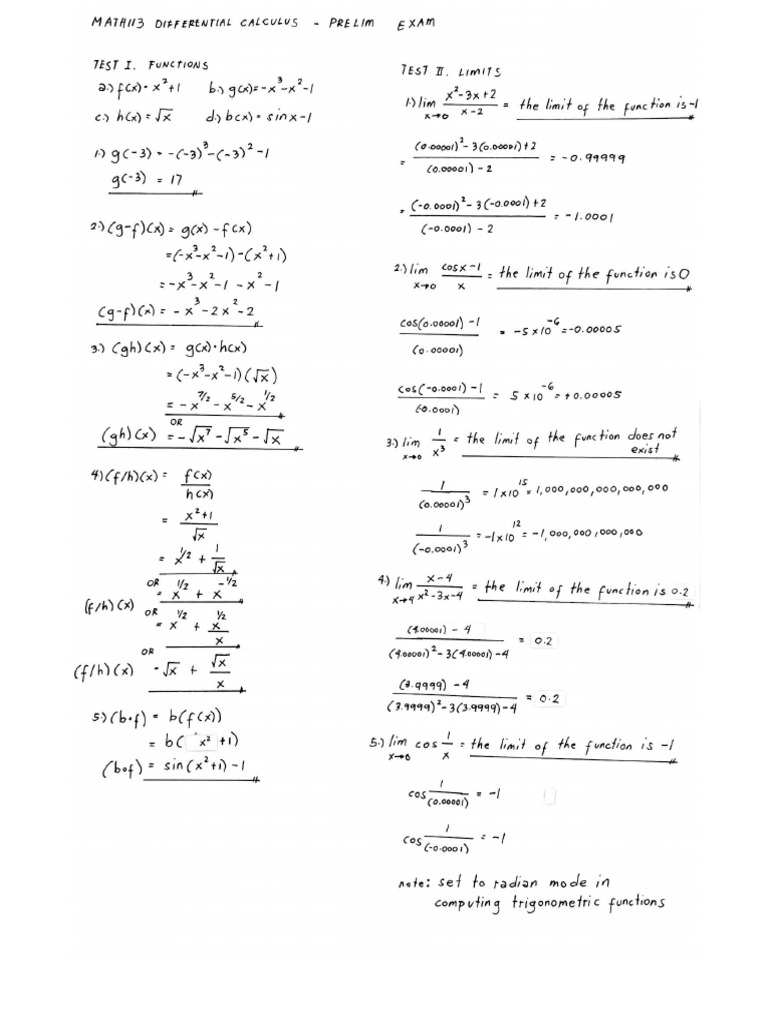 MATH113 DIFFERENTIAL CALCULUS - PRELIM EXAM
TEST I. FUNCTIONS
a.) f(x) = x²+1 b.) g(x) = -x³-x²-1
c.) h(x) = √x d.) b(x) = sinx-1
1.) g(-3) = -(-3)³-(-3)²-1
g(-3) = 17
2.) (g-f)(x) = g(x) - f(x)
= (-x³-x²-1)-(x²+1)
= -x³-x²-1 -x²-1
(g-f)(x) = -x³-2x²-2
3.) (gh)(x) = g(x)·h(x)
= (-x³-x²-1)(√x)
= -x^7/2 - x^5/2 - x^1/2
OR
(gh)(x) = -√x⁷ - √x⁵ - √x
4) (f/h)(x) = f(x)/h(x)
= x²+1/√x
= x^1/2 + 1/√x
OR
= x^1/2 + x^-1/2
(f/h)(x)
OR
= x^1/2 + x^1/2/x
OR
(f/h)(x) -√x + √x/x
5) (b∘f) = b(f(x))
= b( x² +1)
(b∘f) = sin(x²+1)-1
TEST II. LIMITS
1.) lim x→0 x²-3x+2/x-2 = the limit of the function is -1
= (0.00001)²-3(0.00001)+2/(0.00001)-2 = -0.99999
= (-0.0001)²-3(-0.0001)+2/(-0.0001)-2 = -1.0001
2.) lim x→0 cosx-1/x = the limit of the function is 0
cos(0.00001)-1/(0.00001) = -5x10^-6 = -0.00005
cos(-0.0001)-1/(-0.0001) = 5x10^-6 = +0.00005
3.) lim x→0 1/x³ = the limit of the function does not
exist
1/(0.00001)³ = 1x10^15 = 1,000,000,000,000,000
1/(-0.0001)³ = -1x10^12 = -1,000,000,000,000
4.) lim x→4 x-4/x²-3x-4 = the limit of the function is 0.2
(4.00001)-4/(4.00001)²-3(4.00001)-4 = 0.2
(3.9999)-4/(3.9999)²-3(3.9999)-4 = 0.2
5.) lim x→0 cos 1/x = the limit of the function is -1
cos 1/(0.00001) = -1
cos 1/(-0.0001) = -1
note: set to radian mode in
computing trigonometric functions